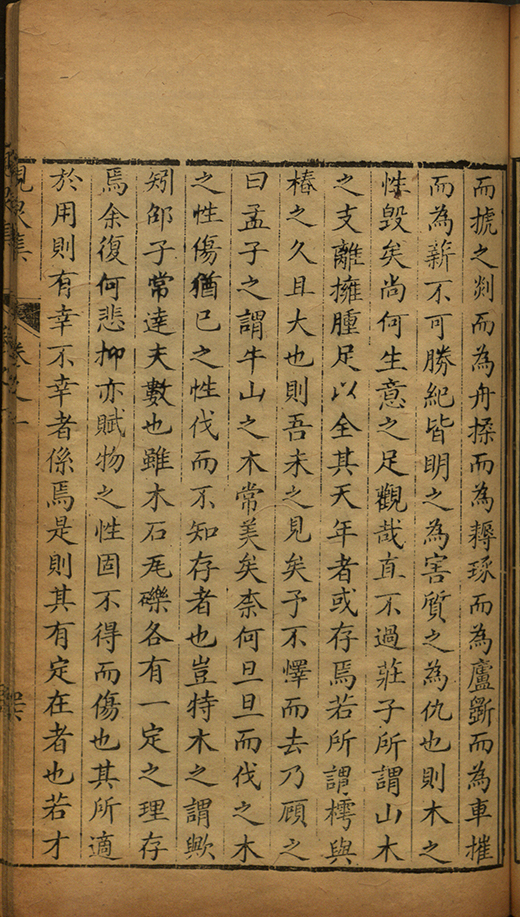 而搋之剡而為舟揉而為耨琢而為廬斲而為車摧
而為薪不可勝紀皆明之為害質之為仇也則木之
性毀矣尚何生意之足觀哉直不過莊子所謂山木
之支離擁腫足以全其天年者或存焉若所謂樗與
樁之久且大也則吾未之見矣予不懌而去乃顧之
曰孟子之謂牛山之木常美矣柰何旦旦而伐之木
之性傷猶己之性伐而不知存者也豈特木之謂歟
矧邵子常達夫數也雖木石瓦礫各有一定之理存
焉余復何悲抑亦賦物之性固不得而傷也其所適
於用則有幸不幸者係焉是則其有定在者也若才
峴泉集
卷之一